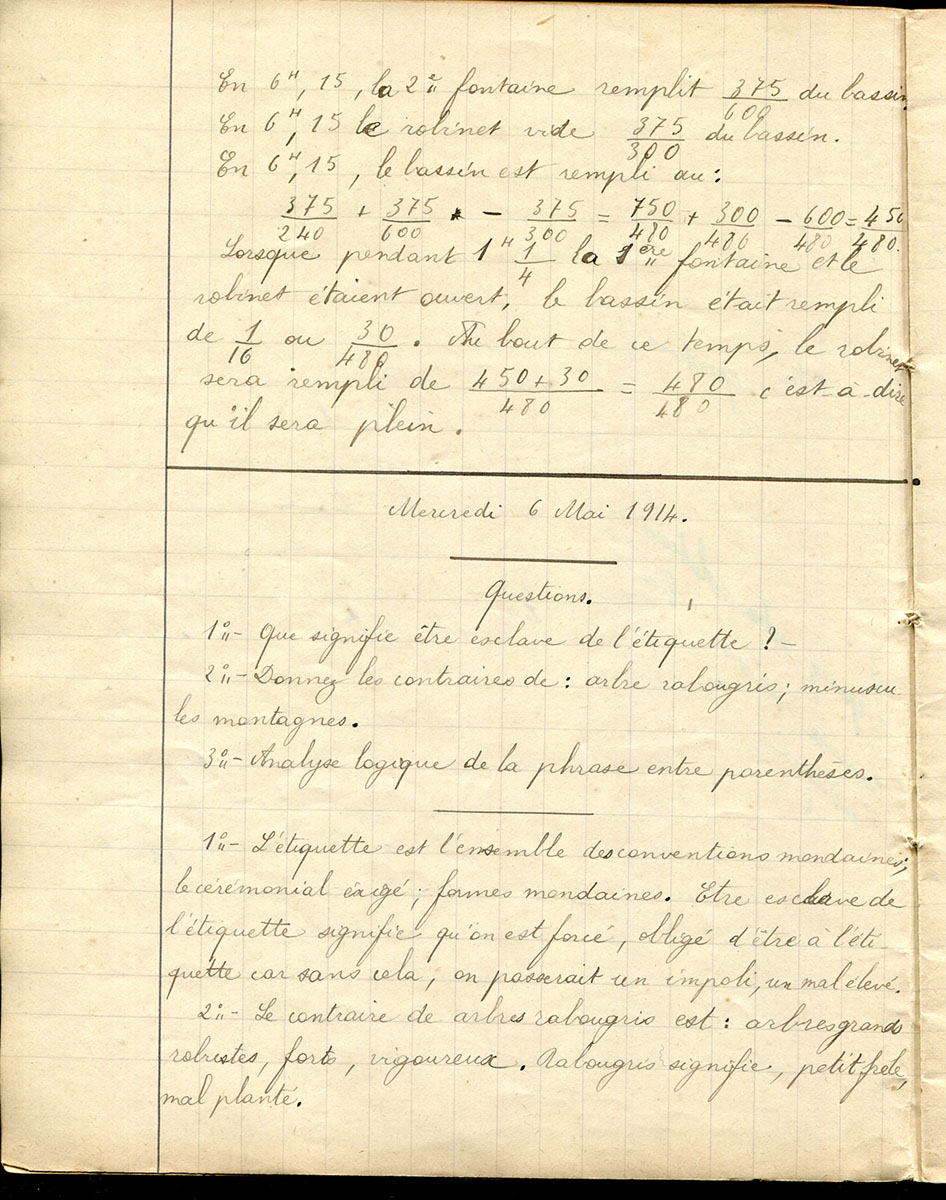 En 6ᴴ, 15, la 2e fontaine remplit 375/600 du bassin
En 6ᴴ, 15 le robinet vide 375/300 du bassin.
En 6ᴴ, 15, le bassin est rempli au :
375/240 + 375/600 - 375/300 = 750/480 + 300/480 - 600/480 = 450/480.
Lorsque pendant 1ᴴ 1/4 la 1ère fontaine et le
robinet étaient ouvert, le bassin était rempli
de 1/16 ou 30/480. Au bout de ce temps, le robinet
sera rempli de 450+30/480 = 480/480 c'est-à-dire
qu'il sera plein.
Mercredi 6 Mai 1914.
Questions.
1o- Que signifie être esclave de l'étiquette ? -
2o- Donnez les contraires de : arbre rabougris ; minuscu-
les montagnes.
3o- Analyse logique de la phrase entre parenthèses.
1o- L'étiquette est l'ensemble des conventions mondaines,
le cérémonial éxigé ; formes mondaines. Etre esclave de
l'étiquette signifie qu'on est forcé, obligé d'être à l'éti-
quette car sans cela, on passerait un impoli, un mal élevé.
2o- Le contraire de arbres rabougris est : arbres grands
robustes, forts, vigoureux. Rabougris signifie, petit, frele,
mal planté.